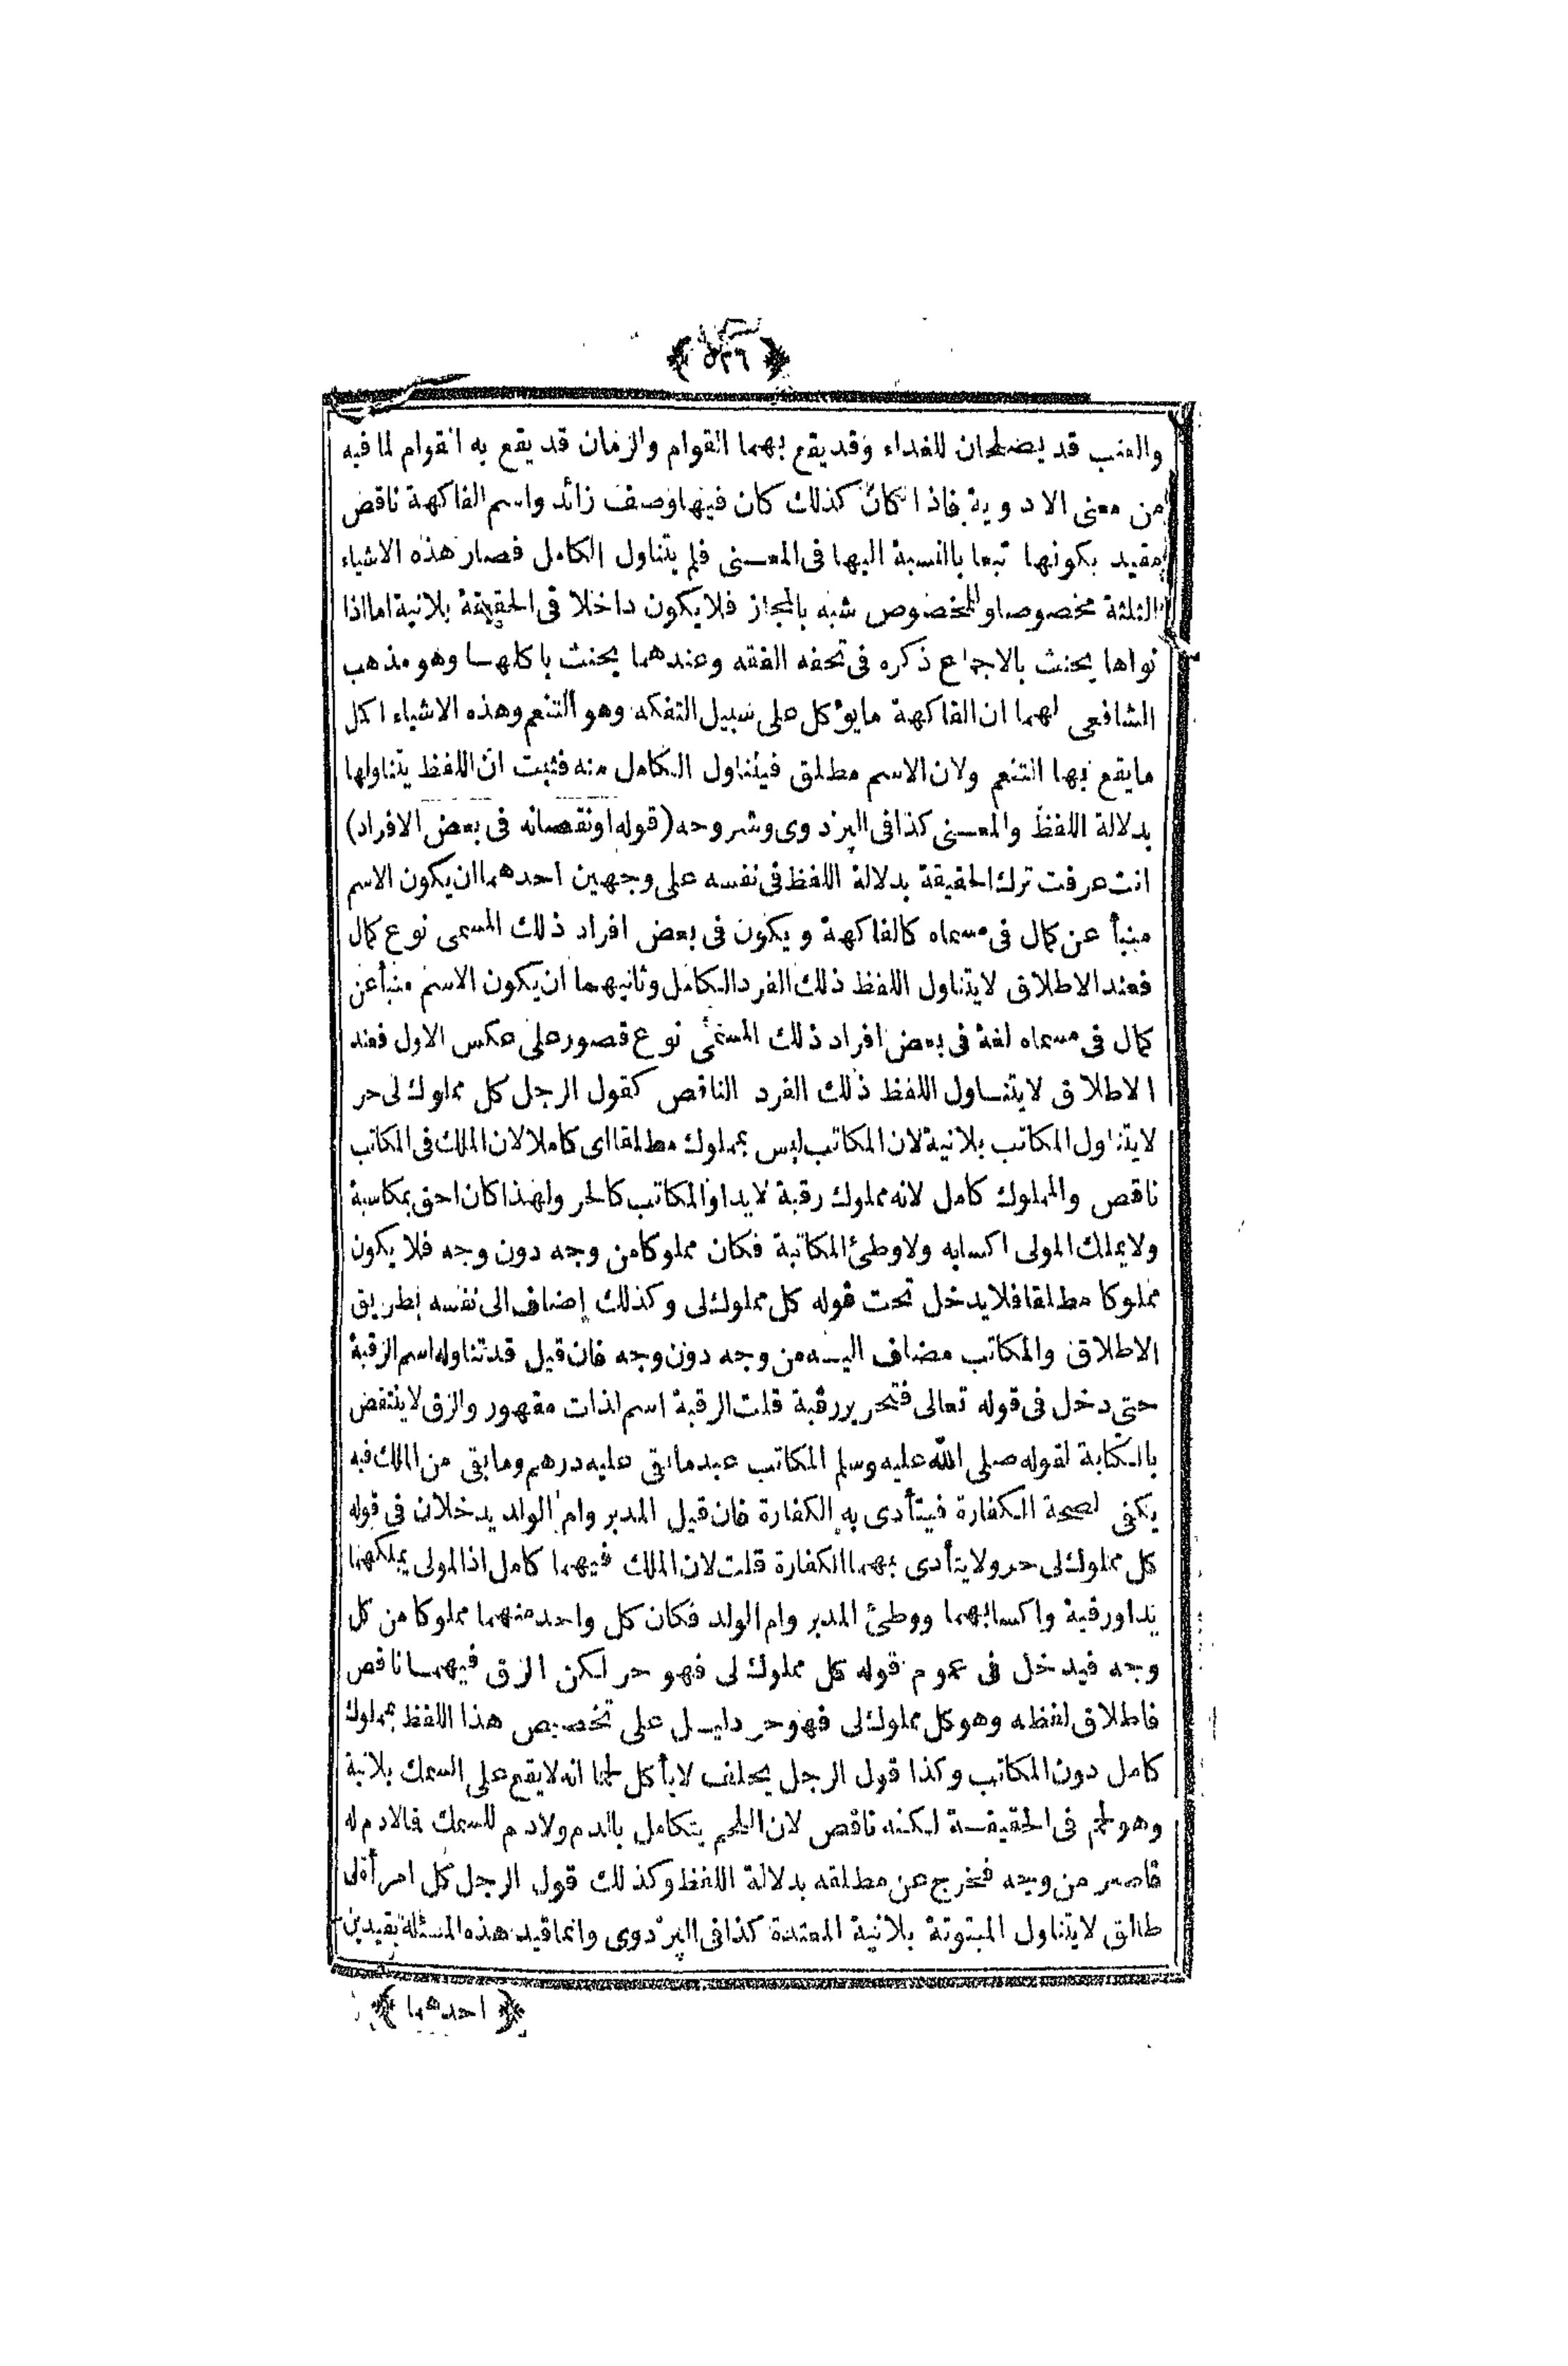 ﴿ ٥٣٦ ﴾
والعنب قد يصلحان للغداء وقد يقع بهما القوام والرمان قد يقع به القوام لما فيه
من معنى الادوية فاذا كان كذلك كان فيها وصف زائد واسم الفاكهة ناقص
مقيد بكونها تبعا بالنسبة اليها فى المعنى فلم يتناول الكامل فصار هذه الاشياء
الثلثة مخصوصا والمخصوص شبه بالمجاز فلا يكون داخلا فى الحقيقة بلا نية اما اذا
نواها يحنث بالاجماع ذكره فى تحفه الفقه وعندهما يحنث باكلها وهو مذهب
الشافعى لهما ان الفاكهة ما يؤكل على سبيل التفكه وهو التنعم وهذه الاشياء اكمل
ما يقع بها التنعم ولان الاسم مطلق فيتناول الكامل منه فثبت ان اللفظ يتناولها
بدلالة اللفظ والمعنى كذا فى البزدوى وشروحه (قوله او نقصانه فى بعض الافراد)
انت عرفت ترك الحقيقة بدلالة اللفظ فى نفسه على وجهين احدهما ان يكون الاسم
منبأ عن كمال فى مسماه كالفاكهة و يكون فى بعض افراد ذلك المسمى نوع كمال
فعند الاطلاق لا يتناول اللفظ ذلك الفرد الكامل وثانيهما ان يكون الاسم منبأ عن
كمال فى مسماه لغة فى بعض افراد ذلك المسمى نوع قصور على عكس الاول فعند
الاطلاق لا يتناول اللفظ ذلك الفرد الناقص كقول الرجل كل مملوك لى حر
لا يتناول المكاتب بلا نية لان المكاتب ليس بمملوك مطلقا اى كاملا لان الملك فى المكاتب
ناقص والمملوك كامل لانه مملوك رقبة لا يدا والمكاتب كالحر ولهذا كان احق بمكاسبة
ولا يملك المولى اكسابه ولا وطئ المكاتبة فكان مملوكا من وجه دون وجه فلا يكون
مملوكا مطلقا فلا يدخل تحت قوله كل مملوك لى وكذلك اضاف الى نفسه بطريق
الاطلاق والمكاتب مضاف اليه من وجه دون وجه فان قيل قد تناوله اسم الرقبة
حتى دخل فى قوله تعالى فتحرير رقبة قلت الرقبة اسم لذات مقهور والرق لا ينتقض
بالكتابة لقوله صلى الله عليه وسلم المكاتب عبد ما بقى عليه درهم وما بقى من الملك فيه
يكفى لصحة الكفارة فيتأدى به الكفارة فان قيل المدبر وام الولد يدخلان فى قوله
كل مملوك لى حر ولا يتأدى بهما الكفارة قلت لان الملك فيهما كامل اذ المولى يملكهما
يدا ورقبة واكسابهما ووطئ المدبر وام الولد فكان كل واحد منهما مملوكا من كل
وجه فيدخل فى عموم قوله كل مملوك لى فهو حر لكن الرق فيهما ناقص
فاطلاق لفظه وهو كل مملوك لى فهو حر دليل على تخصيص هذا اللفظ بمملوك
كامل دون المكاتب وكذا قول الرجل يحلف لا يأكل لحما انه لا يقع على السمك بلا نية
وهو لحم فى الحقيقة لكنه ناقص لان اللحم يتكامل بالدم ولا دم للسمك فالادم له
قاصر من وجه فخرج عن مطلقه بدلالة اللفظ وكذلك قول الرجل كل امرأة لى
طالق لا يتناول المبتوتة بلا نية المعتدة كذا فى البزدوى وانما قيد هذه المسئلة بقيدين
﴿ احدهما ﴾